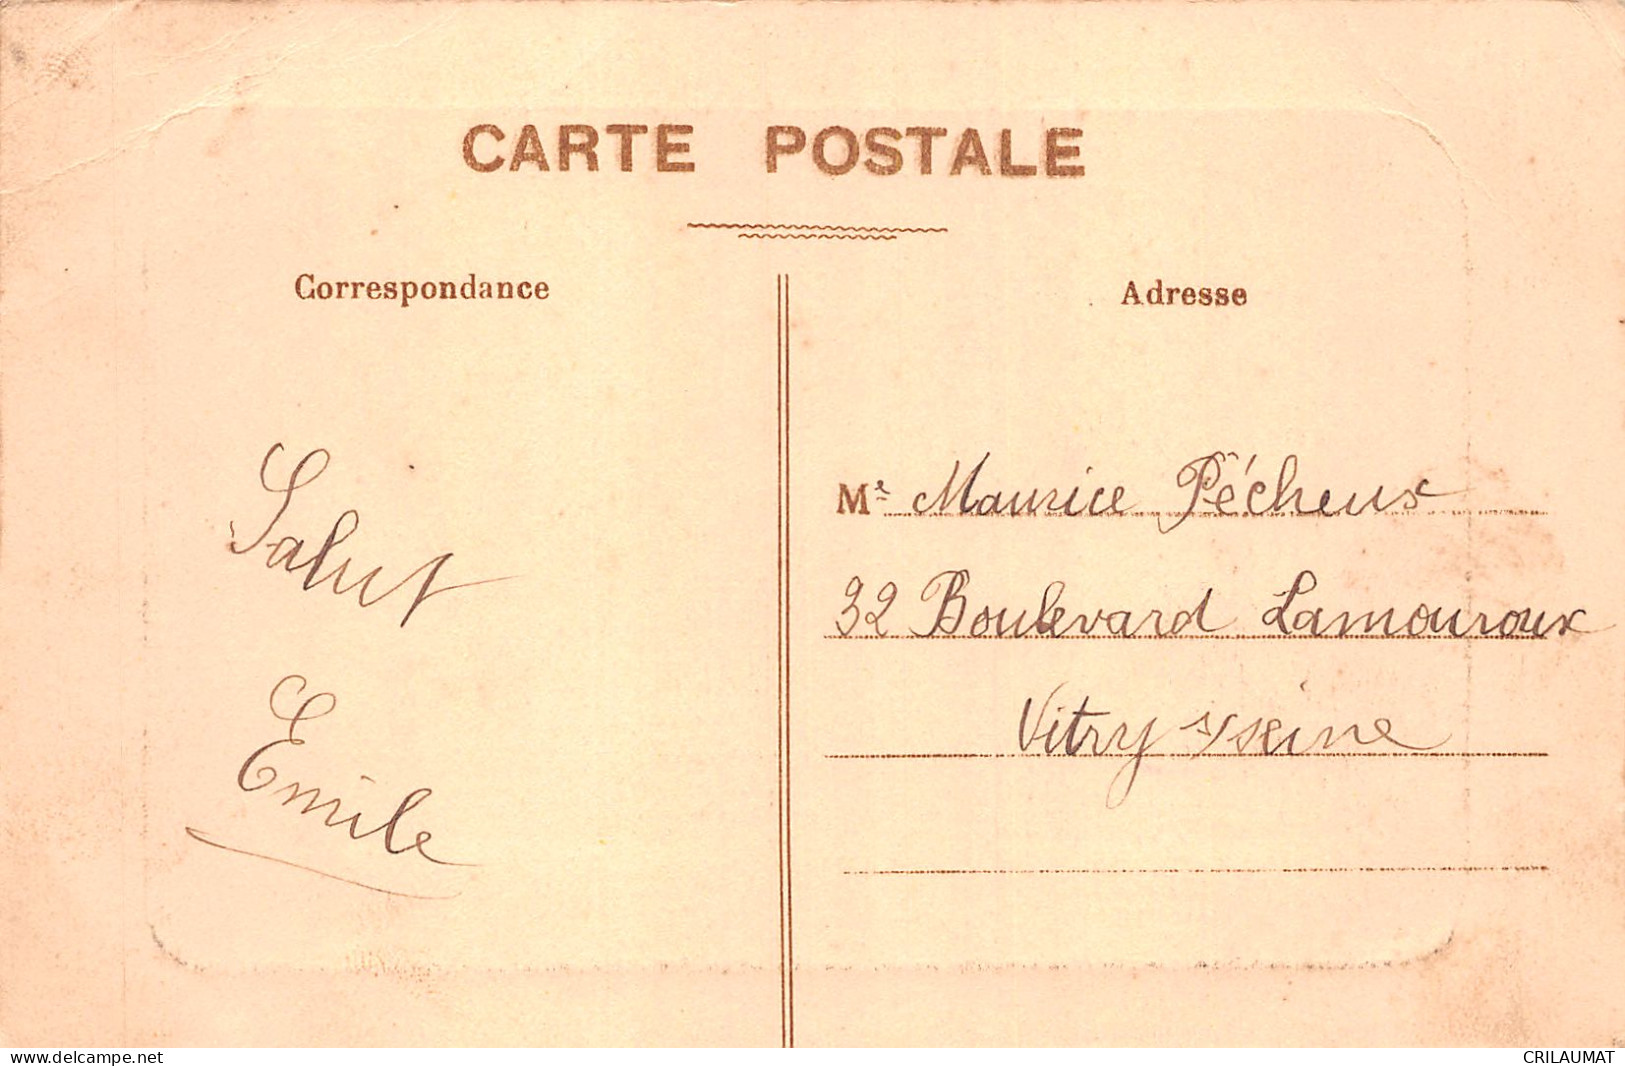 CARTE POSTALE
Correspondance
Adresse
Salut
Emile
Me Maurice Pécheux
32 Boulevard Lamouroux
Vitry s/seine
delcampe.net
CRILAUMAT